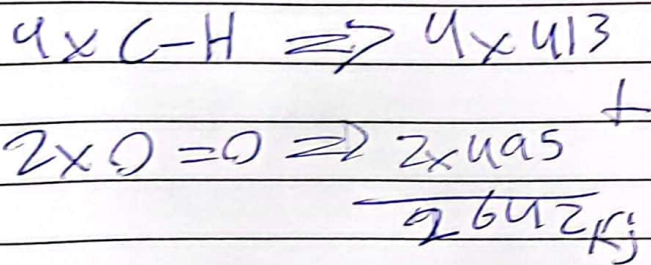 4 x C-H => 4 x 413
+
2 x O=O => 2 x 495
2642 Kj